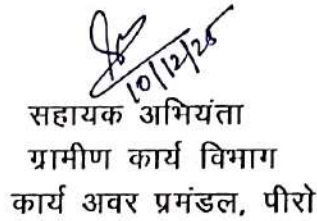 10/12/25
सहायक अभियंता
ग्रामीण कार्य विभाग
कार्य अवर प्रमंडल, पीरो